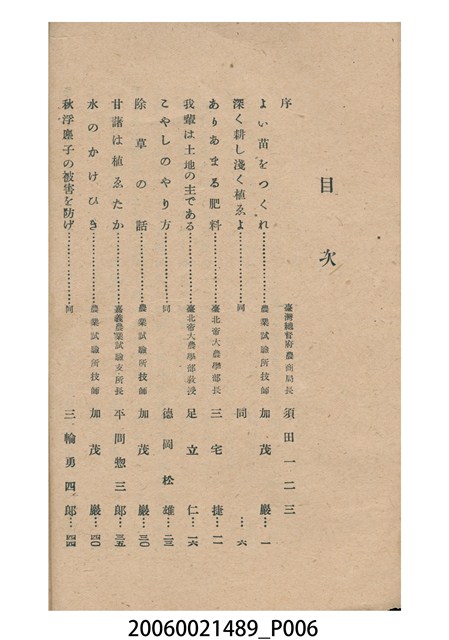 目次
序 臺灣總督府農商局長 須田一二三
よい苗をつくれ………農業試驗所技師 加茂巖…一
深く耕し淺く植ゑよ………同 同…六
ありあまる肥料………臺北帝大農學部長 三宅捷…一一
我輩は土地の主である………臺北帝大農學部敎授 足立仁…一六
こやしのやり方………同 德岡松雄…二三
除草の話………農業試驗所技師 加茂巖…三〇
甘藷は植ゑたか………嘉義農業試驗支所長 平間惣三郞…三五
水のかけひき………農業試驗所技師 加茂巖…四〇
秋浮塵子の被害を防げ………同 三輪勇四郞…四四
20060021489_P006